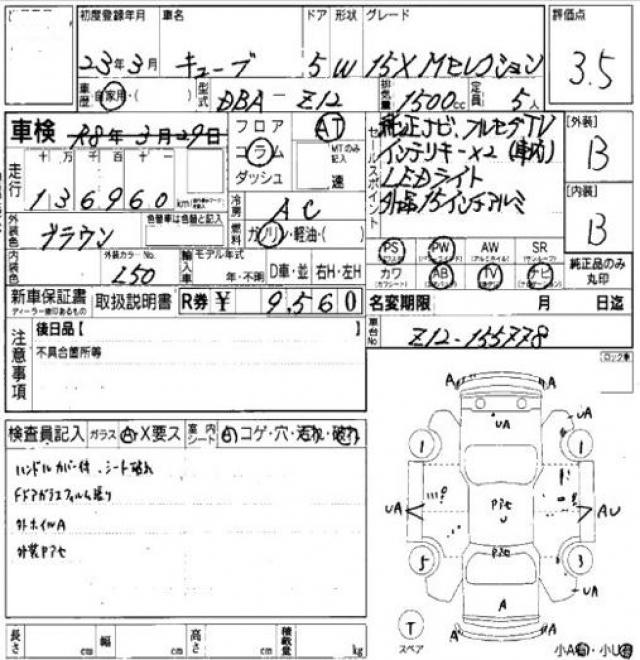 初度登録年月 車名 ドア 形状 グレード 評価点
23年3月 キューブ 5 W 15X Mセレクション 3.5
車歴 自家用・( ) 型式 DBA-Z12 排気量 1500cc 定員 5人
車検 R8年3月29日
フロア AT
コラム MTのみ記入
ダッシュ 速
セールスポイント
純正ナビ、フルセグTV
インテリキー×2
LEDライト
外品15インチアルミ
[外装]
B
[内装]
B
走行 十 万 千 百 十 一
136960 km
冷房 AC
外装色 ブラウン 色替車は色替と記入
燃料 ガソリン・軽油・( )
内装色 外装カラーNo. L50
輸入車 モデル年式 年・不明 D車・並 右H・左H
PS PW AW SR
(パワステ) (パワーウインド) (アルミホイル) (サンルーフ)
カワ AB TV ナビ
(カワシート) (エアバッグ) (ナビゲーション)
純正品のみ丸印
新車保証書 取扱説明書 R券 ¥ 9,560
ディーラー捺印あるもの
名変期限 月 日迄
車台No Z12-155778
注意事項
後日品【
不具合箇所等
ロック車
検査員記入 ガラス A・X要ス 室内シート コゲ・穴・汚れ・破れ
ハンドルカバー付、シート破れ
FドアガラスフィルムR張り
外ホイルA
外装Pアセ
A A
UA UA
1 1
UA Pアセ U AU
Pアセ
5 3
A UA
T A A
スペア
小A・小U
長さ cm 幅 cm 高さ cm 積載量 kg